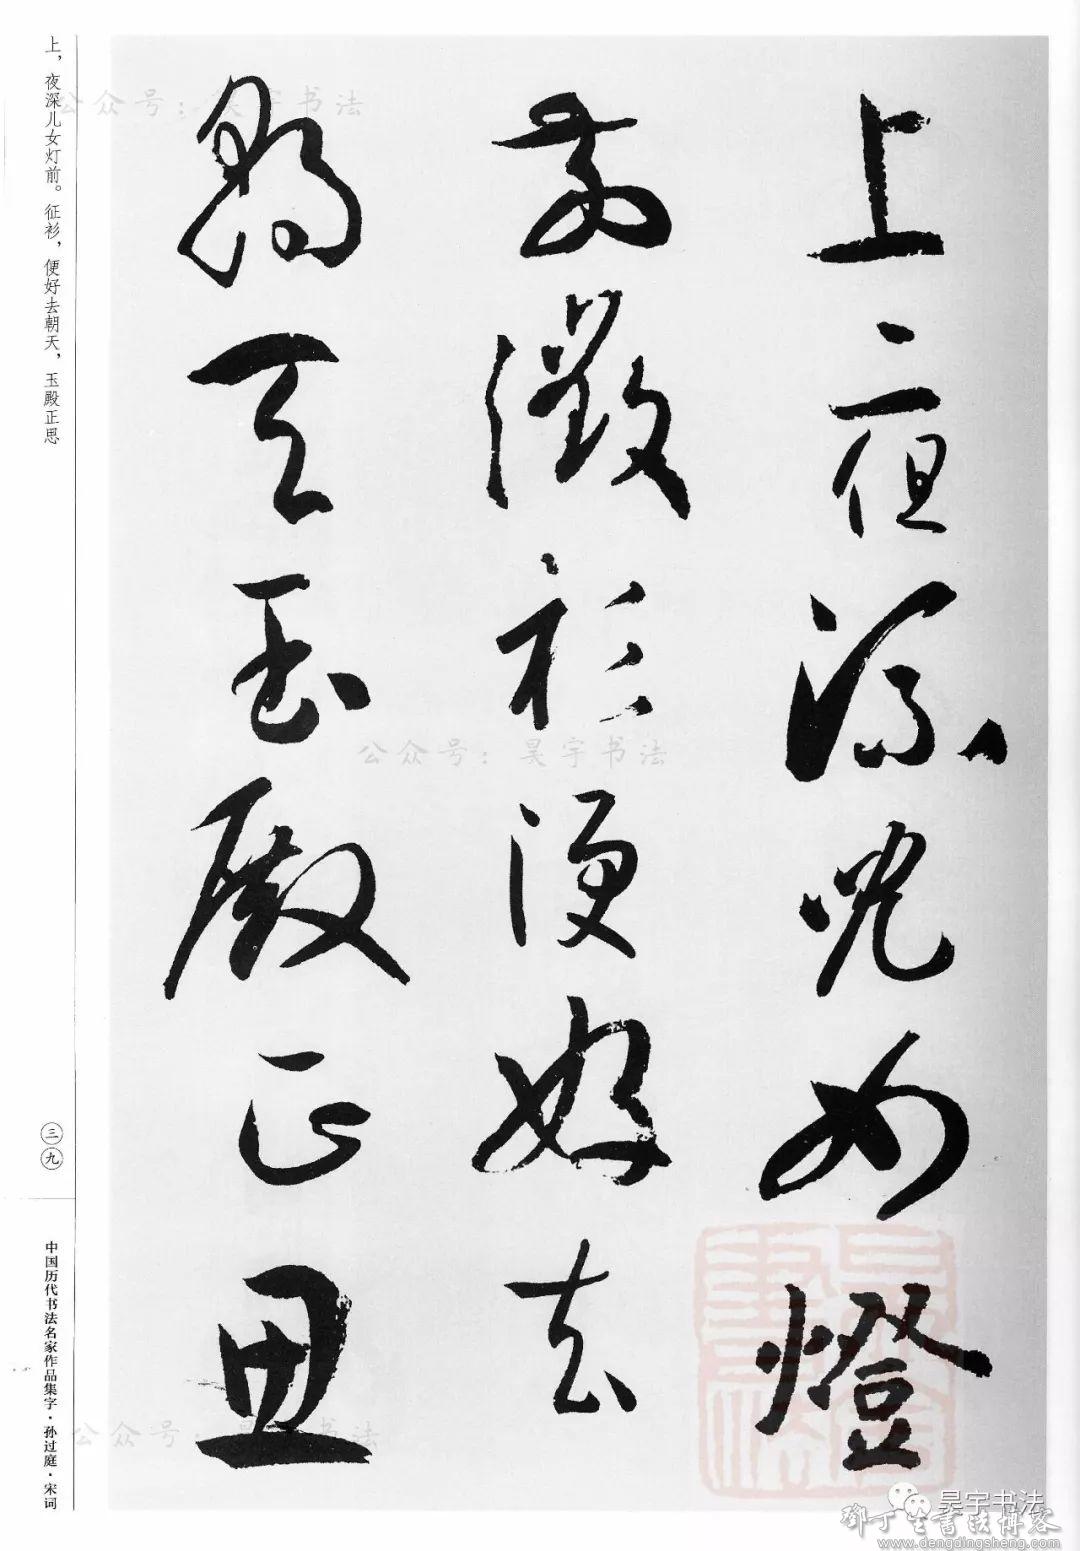 上夜深兒女燈
前徵衫便好去
朝天玉殿正思
上，夜深儿女灯前。征衫，便好去朝天，玉殿正思
三九
中国历代书法名家作品集字·孙过庭·宋词
公众号：昊宇书法
公众号：昊宇书法
公众号：昊宇书法
昊宇书法
昊宇书法
鄧丁生書法博客
www.dengdingsheng.com